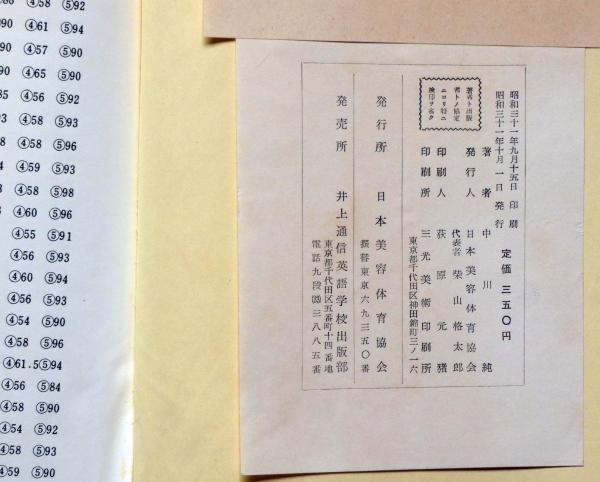 ④58 ⑤92
④61 ⑤94
④57 ⑤90
④65 ⑤90
④56 ⑤92
④58 ⑤93
④58 ⑤96
④59 ⑤93
④58 ⑤98
④60 ⑤96
④55 ⑤91
④56 ⑤93
④60 ⑤94
④56 ⑤93
④54 ⑤90
④58 ⑤96
④61.5⑤94
④56 ⑤84
④58 ⑤90
④54 ⑤92
④58 ⑤93
④59 ⑤90
昭和三十一年九月十五日 印刷
昭和三十一年十月一日 発行
定価 三五〇円
著者 中川純
発行人 日本美容体育協会
代表者 柴山格太郎
印刷人 荻原元猪
印刷所 三光美術印刷所
東京都千代田区神田錦町三ノ一六
著者ト出版
者トノ協定
ニヨリ特ニ
検印ヲ省ク
発行所 日本美容体育協会
振替東京六九三五〇番
発売所 井上通信英語学校出版部
東京都千代田区五番町十四番地
電話九段(33)三八八五番